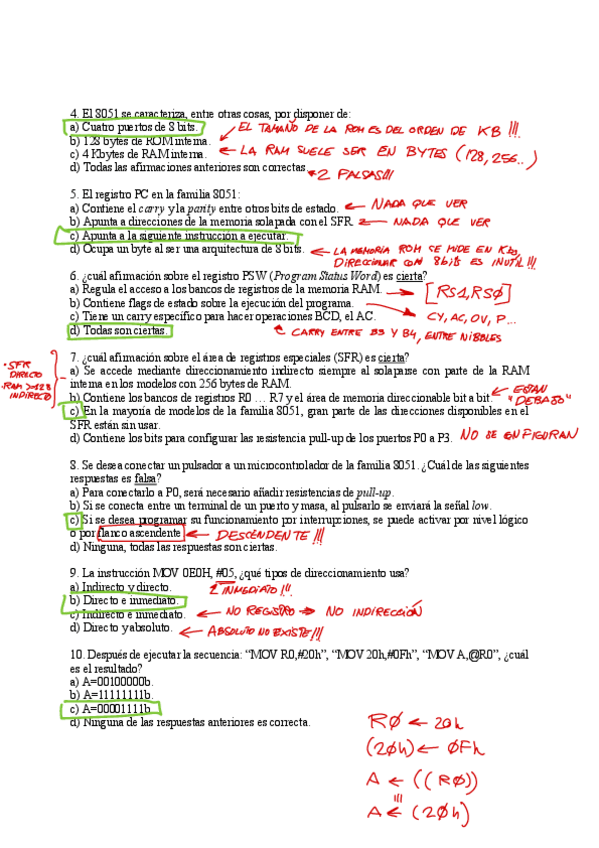 4. El 8051 se caracteriza, entre otras cosas, por disponer de:
a) Cuatro puertos de 8 bits.
EL TAMAÑO DE LA ROM ES DEL ORDEN DE KB !!!
b) 128 bytes de ROM interna.
c) 4 Kbytes de RAM interna. ← LA RAM SUELE SER EN BYTES (128, 256..)
d) Todas las afirmaciones anteriores son correctas. ← 2 FALSAS!!!
5. El registro PC en la familia 8051:
a) Contiene el carry y la parity entre otros bits de estado. ← NADA QUE VER
b) Apunta a direcciones de la memoria solapada con el SFR. ← NADA QUE VER
c) Apunta a la siguiente instrucción a ejecutar.
d) Ocupa un byte al ser una arquitectura de 8 bits. ← LA MEMORIA ROM SE MIDE EN Kb,
DIRECCIONAR CON 8bits ES INUTIL!!!
6. ¿cuál afirmación sobre el registro PSW (Program Status Word) es cierta?
a) Regula el acceso a los bancos de registros de la memoria RAM. → [RS1, RS0]
b) Contiene flags de estado sobre la ejecución del programa.
c) Tiene un carry específico para hacer operaciones BCD, el AC. CY, AC, OV, P...
d) Todas son ciertas. ← CARRY ENTRE B3 Y B4, ENTRE NIBBLES
7. ¿cuál afirmación sobre el área de registros especiales (SFR) es cierta?
·SFR
DIRECTO
·RAM >128
INDIRECTO
a) Se accede mediante direccionamiento indirecto siempre al solaparse con parte de la RAM
interna en los modelos con 256 bytes de RAM.
b) Contiene los bancos de registros R0 … R7 y el área de memoria direccionable bit a bit. ← ESTAN
"DEBAJO"
c) En la mayoría de modelos de la familia 8051, gran parte de las direcciones disponibles en el
SFR están sin usar.
d) Contiene los bits para configurar las resistencia pull-up de los puertos P0 a P3. NO SE CONFIGURAN
8. Se desea conectar un pulsador a un microcontrolador de la familia 8051. ¿Cuál de las siguientes
respuestas es falsa?
a) Para conectarlo a P0, será necesario añadir resistencias de pull-up.
b) Si se conecta entre un terminal de un puerto y masa, al pulsarlo se enviará la señal low.
c) Si se desea programar su funcionamiento por interrupciones, se puede activar por nivel lógico
o por flanco ascendente ← DESCENDENTE !!!
d) Ninguna, todas las respuestas son ciertas.
9. La instrucción MOV 0E0H, #05, ¿qué tipos de direccionamiento usa?
a) Indirecto y directo. INMEDIATO !!!
b) Directo e inmediato.
c) Indirecto e inmediato. ← NO REGISTRO → NO INDIRECCIÓN
d) Directo y absoluto. ← ABSOLUTO NO EXISTE!!!
10. Después de ejecutar la secuencia: “MOV R0,#20h”, “MOV 20h,#0Fh”, “MOV A,@R0”, ¿cuál
es el resultado?
a) A=00100000b.
b) A=11111111b.
c) A=00001111b.
d) Ninguna de las respuestas anteriores es correcta.
R0 ← 20h
(20h) ← 0Fh
A ← ((R0))
A ← (20h)